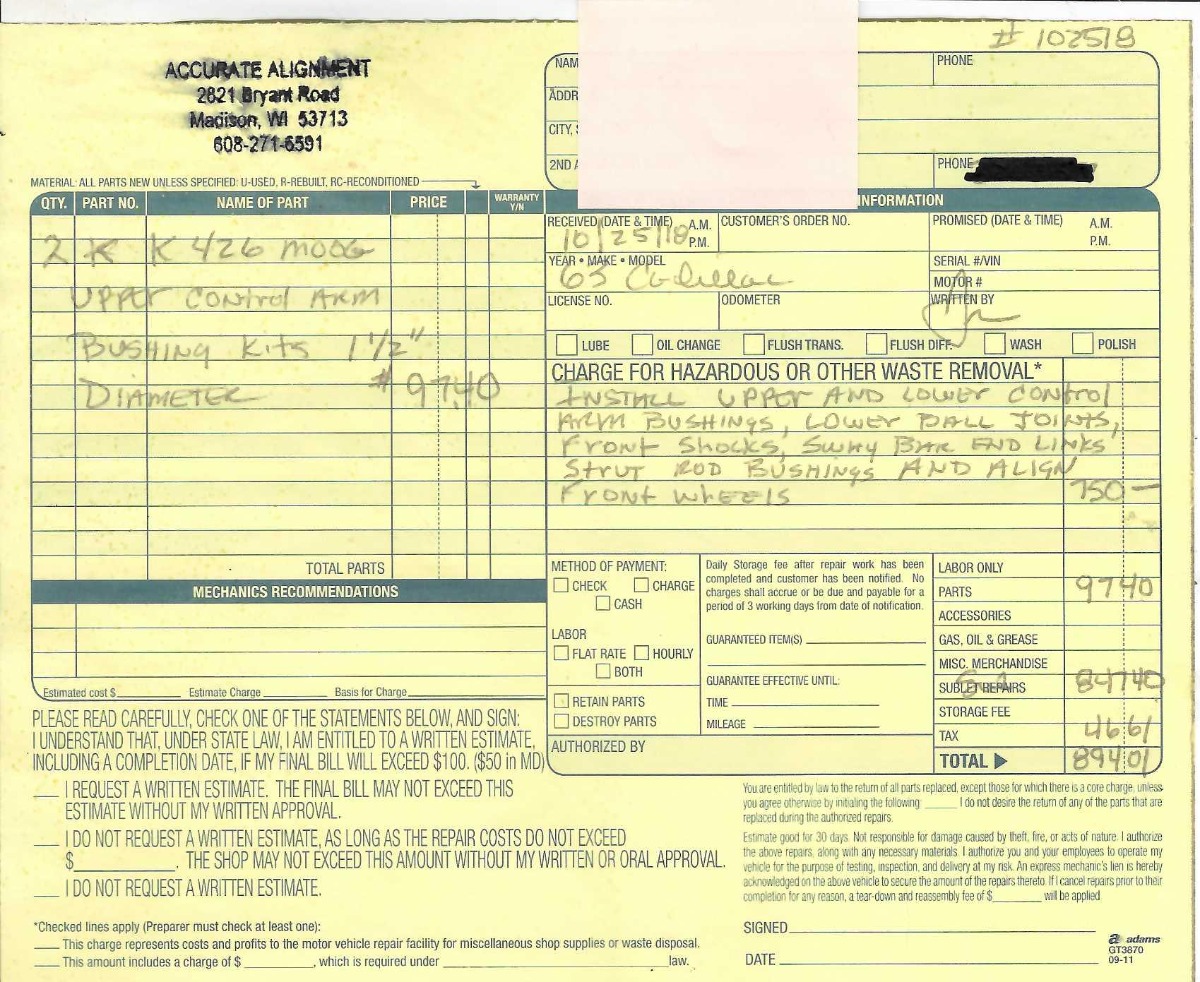 # 102518
ACCURATE ALIGNMENT
2821 Bryant Road
Madison, WI 53713
608-271-6591
NAM
PHONE
ADDR
CITY, S
2ND A
PHONE
MATERIAL: ALL PARTS NEW UNLESS SPECIFIED: U-USED, R-REBUILT, RC-RECONDITIONED
QTY. PART NO. NAME OF PART PRICE WARRANTY Y/N
2 K K426 MOOG
UPPER CONTROL ARM
BUSHING KITS 1 1/2"
DIAMETER # 97.40
TOTAL PARTS
MECHANICS RECOMMENDATIONS
Estimated cost $ Estimate Charge Basis for Charge
INFORMATION
RECEIVED (DATE & TIME) A.M. P.M. 10/25/18
CUSTOMER'S ORDER NO.
PROMISED (DATE & TIME) A.M. P.M.
YEAR • MAKE • MODEL 63 Cadillac
SERIAL #/VIN
MOTOR #
LICENSE NO. ODOMETER WRITTEN BY
LUBE OIL CHANGE FLUSH TRANS. FLUSH DIFF. WASH POLISH
CHARGE FOR HAZARDOUS OR OTHER WASTE REMOVAL*
INSTALL UPPER AND LOWER CONTROL
ARM BUSHINGS, LOWER BALL JOINTS,
FRONT SHOCKS, SWAY BAR END LINKS
STRUT ROD BUSHINGS AND ALIGN
FRONT WHEELS 750 —
METHOD OF PAYMENT:
CHECK CHARGE
CASH
LABOR
FLAT RATE HOURLY
BOTH
RETAIN PARTS
DESTROY PARTS
AUTHORIZED BY
Daily Storage fee after repair work has been
completed and customer has been notified. No
charges shall accrue or be due and payable for a
period of 3 working days from date of notification.
GUARANTEED ITEM(S)
GUARANTEE EFFECTIVE UNTIL:
TIME
MILEAGE
LABOR ONLY
PARTS 97 40
ACCESSORIES
GAS, OIL & GREASE
MISC. MERCHANDISE
SUBLET REPAIRS 847 40
STORAGE FEE
TAX 46 61
TOTAL 894 01
PLEASE READ CAREFULLY, CHECK ONE OF THE STATEMENTS BELOW, AND SIGN:
I UNDERSTAND THAT, UNDER STATE LAW, I AM ENTITLED TO A WRITTEN ESTIMATE,
INCLUDING A COMPLETION DATE, IF MY FINAL BILL WILL EXCEED $100. ($50 in MD)
I REQUEST A WRITTEN ESTIMATE. THE FINAL BILL MAY NOT EXCEED THIS
ESTIMATE WITHOUT MY WRITTEN APPROVAL.
I DO NOT REQUEST A WRITTEN ESTIMATE, AS LONG AS THE REPAIR COSTS DO NOT EXCEED
$ . THE SHOP MAY NOT EXCEED THIS AMOUNT WITHOUT MY WRITTEN OR ORAL APPROVAL.
I DO NOT REQUEST A WRITTEN ESTIMATE.
*Checked lines apply (Preparer must check at least one):
This charge represents costs and profits to the motor vehicle repair facility for miscellaneous shop supplies or waste disposal.
This amount includes a charge of $ , which is required under law.
You are entitled by law to the return of all parts replaced, except those for which there is a core charge, unless
you agree otherwise by initialing the following: I do not desire the return of any of the parts that are
replaced during the authorized repairs.
Estimate good for 30 days. Not responsible for damage caused by theft, fire, or acts of nature. I authorize
the above repairs, along with any necessary materials. I authorize you and your employees to operate my
vehicle for the purpose of testing, inspection, and delivery at my risk. An express mechanic's lien is hereby
acknowledged on the above vehicle to secure the amount of the repairs thereto. If I cancel repairs prior to their
completion for any reason, a tear-down and reassembly fee of $ will be applied
SIGNED
DATE
adams
GT3870
09-11